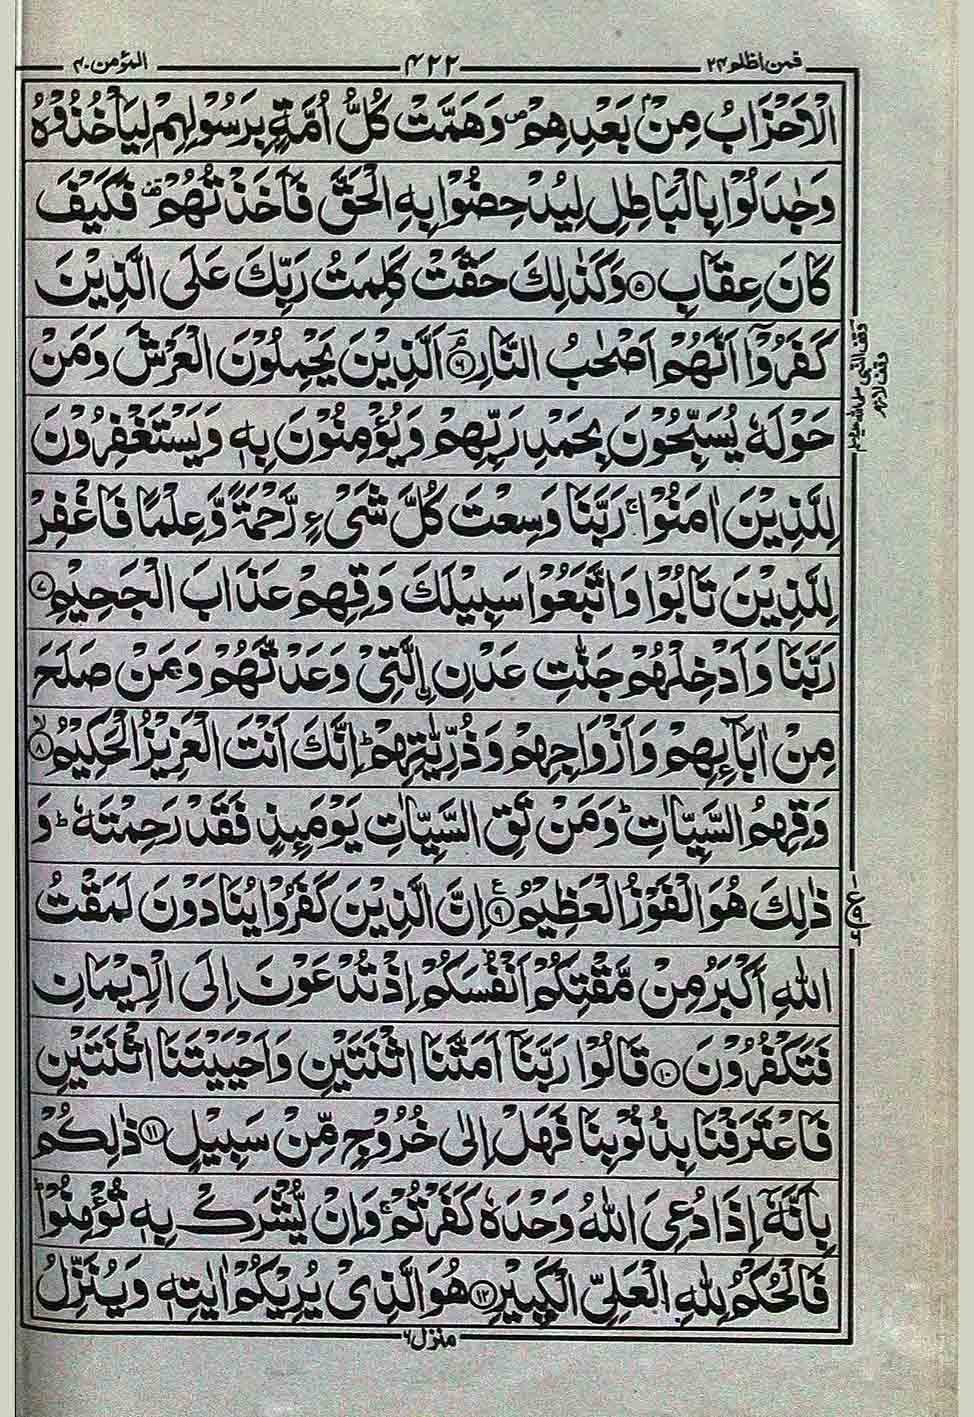 فمن اظلم ۲۴ ۴۲۲ المؤمن ۴۰
الْاَحْزَابُ مِنْۢ بَعْدِهِمْ ۪ وَهَمَّتْ كُلُّ اُمَّةٍۭ بِرَسُوْلِهِمْ لِيَاْخُذُوْهُ
وَجٰدَلُوْا بِالْبَاطِلِ لِيُدْحِضُوْا بِهِ الْحَقَّ فَاَخَذْتُهُمْ ۫ فَكَيْفَ
كَانَ عِقَابِ ۝۵ وَكَذٰلِكَ حَقَّتْ كَلِمَتُ رَبِّكَ عَلَى الَّذِيْنَ
كَفَرُوْۤا اَنَّهُمْ اَصْحٰبُ النَّارِ ۝۶ۘ اَلَّذِيْنَ يَحْمِلُوْنَ الْعَرْشَ وَمَنْ
حَوْلَهٗ يُسَبِّحُوْنَ بِحَمْدِ رَبِّهِمْ وَيُؤْمِنُوْنَ بِهٖ وَيَسْتَغْفِرُوْنَ
لِلَّذِيْنَ اٰمَنُوْا ۚ رَبَّنَا وَسِعْتَ كُلَّ شَيْءٍ رَّحْمَةً وَّعِلْمًا فَاغْفِرْ
لِلَّذِيْنَ تَابُوْا وَاتَّبَعُوْا سَبِيْلَكَ وَقِهِمْ عَذَابَ الْجَحِيْمِ ۝۷
رَبَّنَا وَاَدْخِلْهُمْ جَنّٰتِ عَدْنِ ِ۟الَّتِيْ وَعَدْتَّهُمْ وَمَنْ صَلَحَ
مِنْ اٰبَآئِهِمْ وَاَزْوَاجِهِمْ وَذُرِّيّٰتِهِمْ ؕ اِنَّكَ اَنْتَ الْعَزِيْزُ الْحَكِيْمُ ۝۸ۙ
وَقِهِمُ السَّيِّاٰتِ ؕ وَمَنْ تَقِ السَّيِّاٰتِ يَوْمَئِذٍ فَقَدْ رَحِمْتَهٗ ؕ وَ
ذٰلِكَ هُوَ الْفَوْزُ الْعَظِيْمُ ۝۹ع اِنَّ الَّذِيْنَ كَفَرُوْا يُنَادَوْنَ لَمَقْتُ
اللّٰهِ اَكْبَرُ مِنْ مَّقْتِكُمْ اَنْفُسَكُمْ اِذْ تُدْعَوْنَ اِلَى الْاِيْمَانِ
فَتَكْفُرُوْنَ ۝۱۰ قَالُوْا رَبَّنَاۤ اَمَتَّنَا اثْنَتَيْنِ وَاَحْيَيْتَنَا اثْنَتَيْنِ
فَاعْتَرَفْنَا بِذُنُوْبِنَا فَهَلْ اِلٰى خُرُوْجٍ مِّنْ سَبِيْلٍ ۝۱۱ ذٰلِكُمْ
بِاَنَّهٗۤ اِذَا دُعِيَ اللّٰهُ وَحْدَهٗ كَفَرْتُمْ ۚ وَاِنْ يُّشْرَكْ بِهٖ تُؤْمِنُوْا ؕ
فَالْحُكْمُ لِلّٰهِ الْعَلِيِّ الْكَبِيْرِ ۝۱۲ هُوَ الَّذِيْ يُرِيْكُمْ اٰيٰتِهٖ وَيُنَزِّلُ
منزل ۶